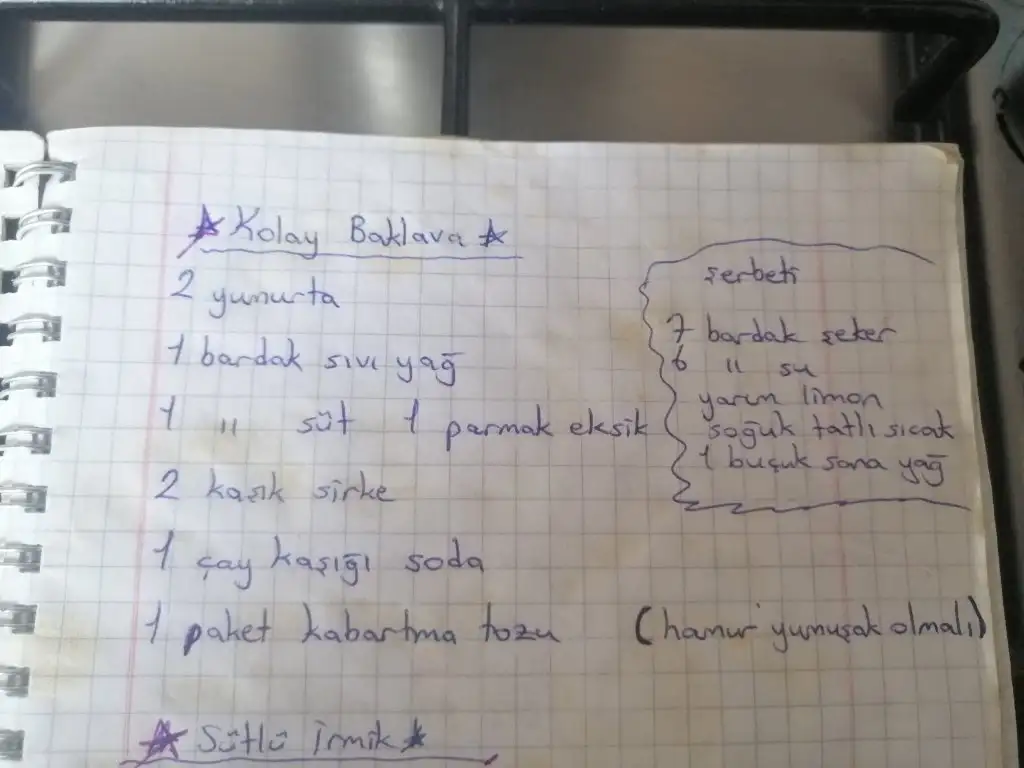 Kolay Baklava
2 yumurta
1 bardak sıvı yağ
1 " süt 1 parmak eksik
2 kaşık sirke
1 çay kaşığı soda
1 paket kabartma tozu (hamur yumuşak olmalı)
şerbeti
7 bardak şeker
6 " su
yarım limon
soğuk tatlı sıcak
1 buçuk sana yağ
Sütlü irmik